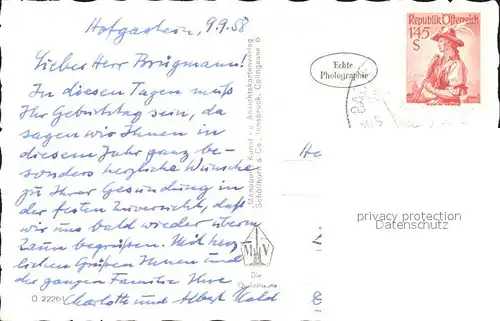 Hofgastein, 9.9.58
Lieber Herr Brügmann!
In diesen Tagen muß
Ihr Geburtstag sein, da
sagen wir Ihnen in
diesem Jahr ganz be-
sonders herzliche Wünsche
zu Ihrer Gesundung in
der festen Zuversicht, daß
wir uns bald wieder überm
Zaun begrüßen. Mit herz-
lichen Grüßen Ihnen und
der ganzen Familie Ihre
Charlotte und Albert
O 2226
Monopol Kunst- u. Ansichtskartenverlag
Schöllhorn & Co., Innsbruck, Colingasse
MV
Die
Echte
Photographie
Republik Österreich
1'45
S
privacy protection
Datenschutz